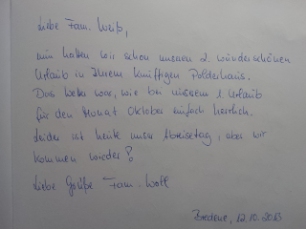 Liebe Fam. Weiß,
nun hatten wir schon unseren 2. wunderschönen
Urlaub in Ihrem kniffigen Polderhaus.
Das Wetter war, wie bei unserem 1. Urlaub
für den Monat Oktober einfach herrlich.
Leider ist heute unser Abreisetag, aber wir
kommen wieder!
Liebe Grüße Fam. Wolf
Bredene, 12.10.2013